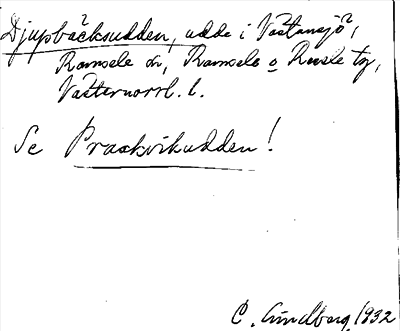 Djupbäcksudden, udde i Västansjö,
Ramsele sn, Ramsele o Resele tg,
Västernorrl. l.
Se Praskvikudden!
C. Lindberg 1932